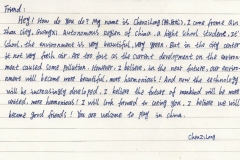 Friend:
Hey! How do you do? My name is ChenziLong, I come frome Qin
zhou city, Guangxi Autonomous region of China. a hight school student. It's
school, the environment is very beautiful, very green. But in the city center
is not very fresh air. Are too fast as the current development on the Environ
ment caused some pollution. However, I believe, in the near future, our environ
ment will become more beautiful, more harmonious! And now the technology
will be increasingly developed, I believe the future of mankind will be more
united, more harmonious! I will look forward to seeing you, I believe we will
become good friends! You are welcome to play in china.
ChenziLong